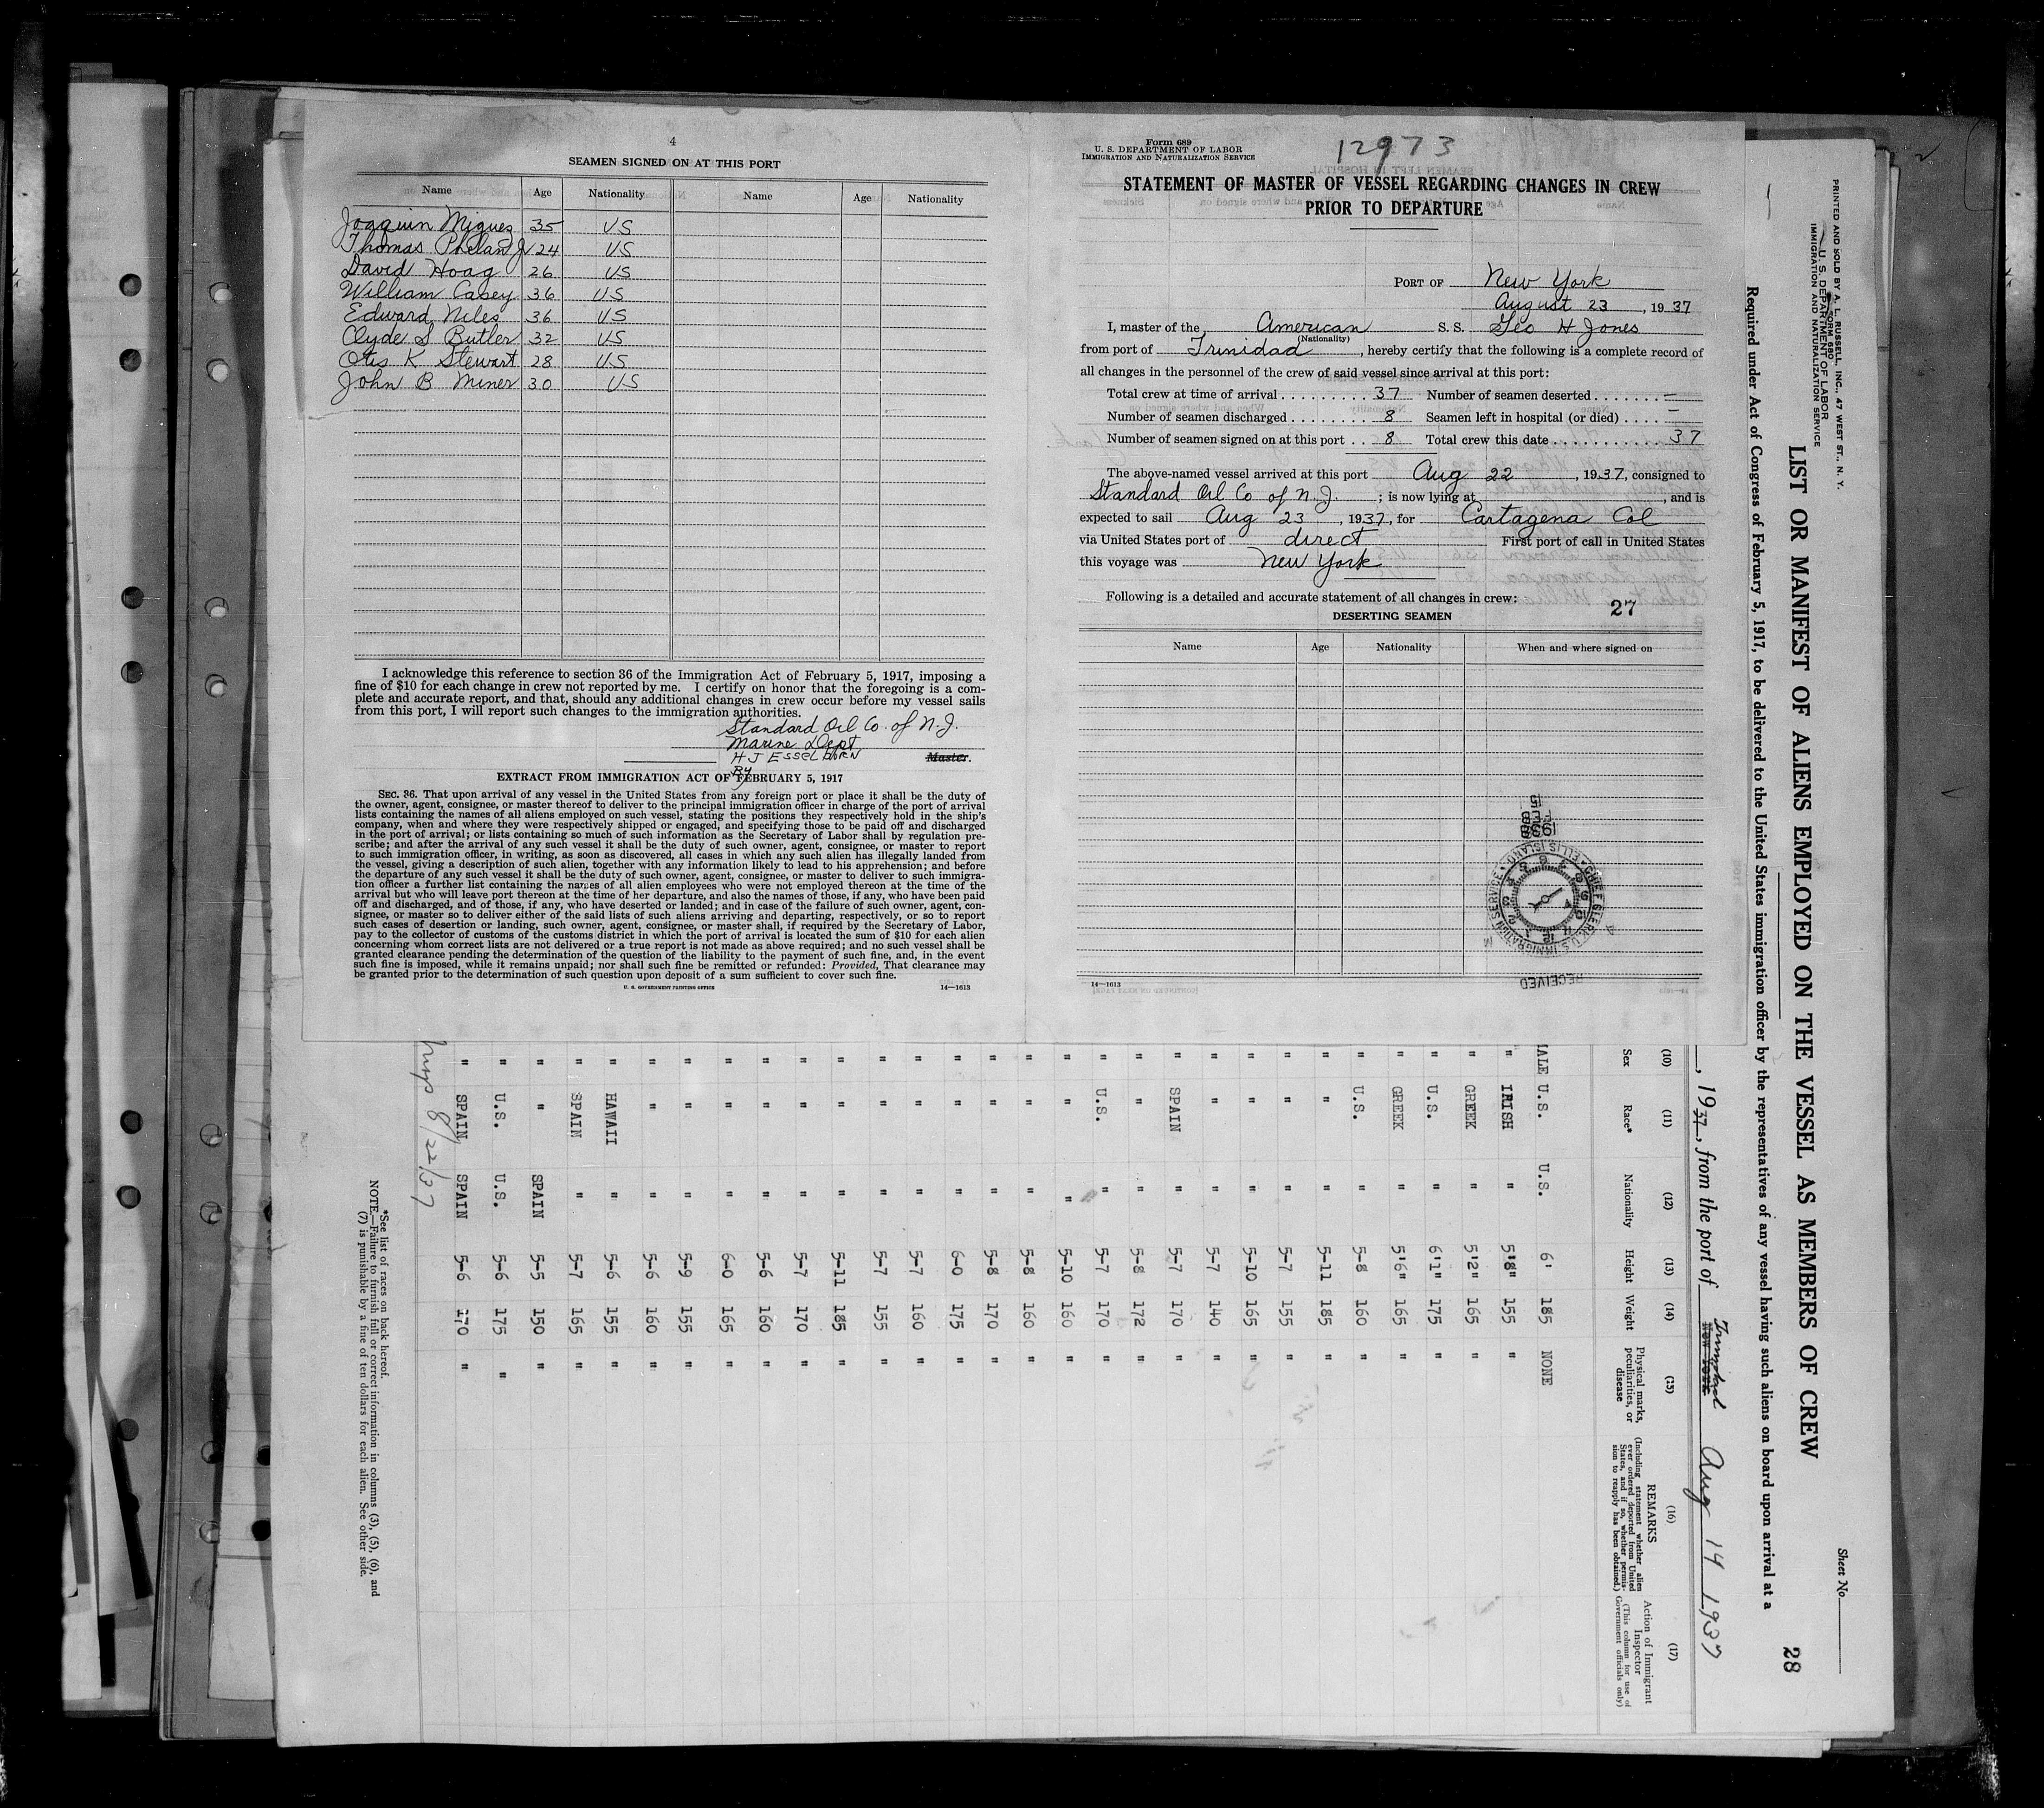 4
SEAMEN SIGNED ON AT THIS PORT
Name Age Nationality Name Age Nationality
Joaquin Miguez 35 US
Thomas Phelan Jr 24 US
David Hoag 26 US
William Casey 36 US
Edward Niles 36 US
Clyde S Butler 32 US
Otis K Stewart 28 US
John B Miner 30 US
I acknowledge this reference to section 36 of the Immigration Act of February 5, 1917, imposing a
fine of $10 for each change in crew not reported by me. I certify on honor that the foregoing is a com-
plete and accurate report, and that, should any additional changes in crew occur before my vessel sails
from this port, I will report such changes to the immigration authorities.
Standard Oil Co. of N.J.
Marine Dept
H J ESSELBORN Master.
By
EXTRACT FROM IMMIGRATION ACT OF FEBRUARY 5, 1917
SEC. 36. That upon arrival of any vessel in the United States from any foreign port or place it shall be the duty of
the owner, agent, consignee, or master thereof to deliver to the principal immigration officer in charge of the port of arrival
lists containing the names of all aliens employed on such vessel, stating the positions they respectively hold in the ship's
company, when and where they were respectively shipped or engaged, and specifying those to be paid off and discharged
in the port of arrival; or lists containing so much of such information as the Secretary of Labor shall by regulation pre-
scribe; and after the arrival of any such vessel it shall be the duty of such owner, agent, consignee, or master to report
to such immigration officer, in writing, as soon as discovered, all cases in which any such alien has illegally landed from
the vessel, giving a description of such alien, together with any information likely to lead to his apprehension; and before
the departure of any such vessel it shall be the duty of such owner, agent, consignee, or master to deliver to such immigra-
tion officer a further list containing the names of all alien employees who were not employed thereon at the time of the
arrival but who will leave port thereon at the time of her departure, and also the names of those, if any, who have been paid
off and discharged, and of those, if any, who have deserted or landed; and in case of the failure of such owner, agent, con-
signee, or master so to deliver either of the said lists of such aliens arriving and departing, respectively, or so to report
such cases of desertion or landing, such owner, agent, consignee, or master shall, if required by the Secretary of Labor,
pay to the collector of customs of the customs district in which the port of arrival is located the sum of $10 for each alien
concerning whom correct lists are not delivered or a true report is not made as above required; and no such vessel shall be
granted clearance pending the determination of the question of the liability to the payment of such fine, and, in the event
such fine is imposed, while it remains unpaid; nor shall such fine be remitted or refunded: Provided, That clearance may
be granted prior to the determination of such question upon deposit of a sum sufficient to cover such fine.
U. S. GOVERNMENT PRINTING OFFICE 14—1613
Form 689
U. S. DEPARTMENT OF LABOR
IMMIGRATION AND NATURALIZATION SERVICE
12973
STATEMENT OF MASTER OF VESSEL REGARDING CHANGES IN CREW
PRIOR TO DEPARTURE
PORT OF New York
August 23, 1937
I, master of the American S. S. Geo H Jones
(Nationality)
from port of Trinidad, hereby certify that the following is a complete record of
all changes in the personnel of the crew of said vessel since arrival at this port:
Total crew at time of arrival 37 Number of seamen deserted —
Number of seamen discharged 8 Seamen left in hospital (or died) —
Number of seamen signed on at this port 8 Total crew this date 37
The above-named vessel arrived at this port Aug 22, 1937, consigned to
Standard Oil Co of N.J.; is now lying at , and is
expected to sail Aug 23, 1937, for Cartagena Col
via United States port of direct First port of call in United States
this voyage was New York
Following is a detailed and accurate statement of all changes in crew:
27
DESERTING SEAMEN
Name Age Nationality When and where signed on
RECEIVED
CHIEF CLERK U.S. IMMIGRATION SERVICE ELLIS ISLAND
14—1613
PRINTED AND SOLD BY A. L. RUSSELL, INC., 47 WEST ST., N. Y.
FORM 680
U. S. DEPARTMENT OF LABOR
IMMIGRATION AND NATURALIZATION SERVICE
Sheet No.
28
LIST OR MANIFEST OF ALIENS EMPLOYED ON THE VESSEL AS MEMBERS OF CREW
Required under Act of Congress of February 5, 1917, to be delivered to the United States immigration officer by the representatives of any vessel having such aliens on board upon arrival at a
, 1937, from the port of Trinidad Aug 14 1937
(10) (11) (12) (13) (14) (15) (16) (17)
Sex Race* Nationality Height Weight Physical marks, peculiarities, or disease
REMARKS
(Including statement whether alien ever ordered deported from United States, and if so, whether permission to reapply has been obtained.)
Action of Immigrant Inspector
(This column for use of Government officials only)
MALE U.S. U.S. 6' 185 NONE
" IRISH " 5'8" 155 "
" GREEK " 5'2" 165 "
" U.S. " 6'1" 175 "
" GREEK " 5'6" 165 "
" U.S. " 5-8 160 "
" " " 5-11 185 "
" " " 5-7 155 "
" " " 5-10 165 "
" " " 5-7 140 "
" SPAIN " 5-7 170 "
" " " 5-8 172 "
" U.S. " 5-7 170 "
" " " 5-10 160 "
" " " 5-8 160 "
" " " 5-8 170 "
" " " 6-0 175 "
" " " 5-7 160 "
" " " 5-7 155 "
" " " 5-11 185 "
" " " 5-7 170 "
" " " 5-6 160 "
" " " 6-0 165 "
" " " 5-9 155 "
" " " 5-6 160 "
" HAWAII " 5-6 155 "
" SPAIN " 5-7 165 "
" " SPAIN 5-5 150 "
" U.S. U.S. 5-6 175 "
" SPAIN SPAIN 5-6 170 "
8/22/37
*See list of races on back hereof.
NOTE.—Failure to furnish full or correct information in columns (3), (5), (6), and
(7) is punishable by a fine of ten dollars for each alien. See other side.